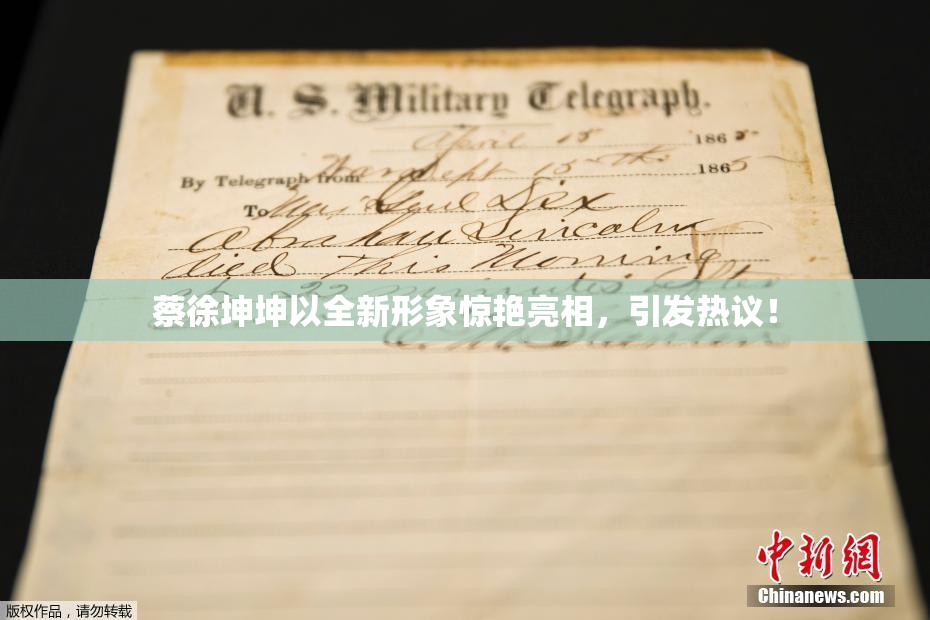 U. S. Military Telegraph.
April 15 1865
By Telegraph from War Dept 15th 1865
To Maj Genl Dix
Abraham Lincoln
died This Morning
at 22 minutes after
蔡徐坤坤以全新形象惊艳亮相，引发热议！
E. M. Stanton
中新网
Chinanews.com
版权作品，请勿转载